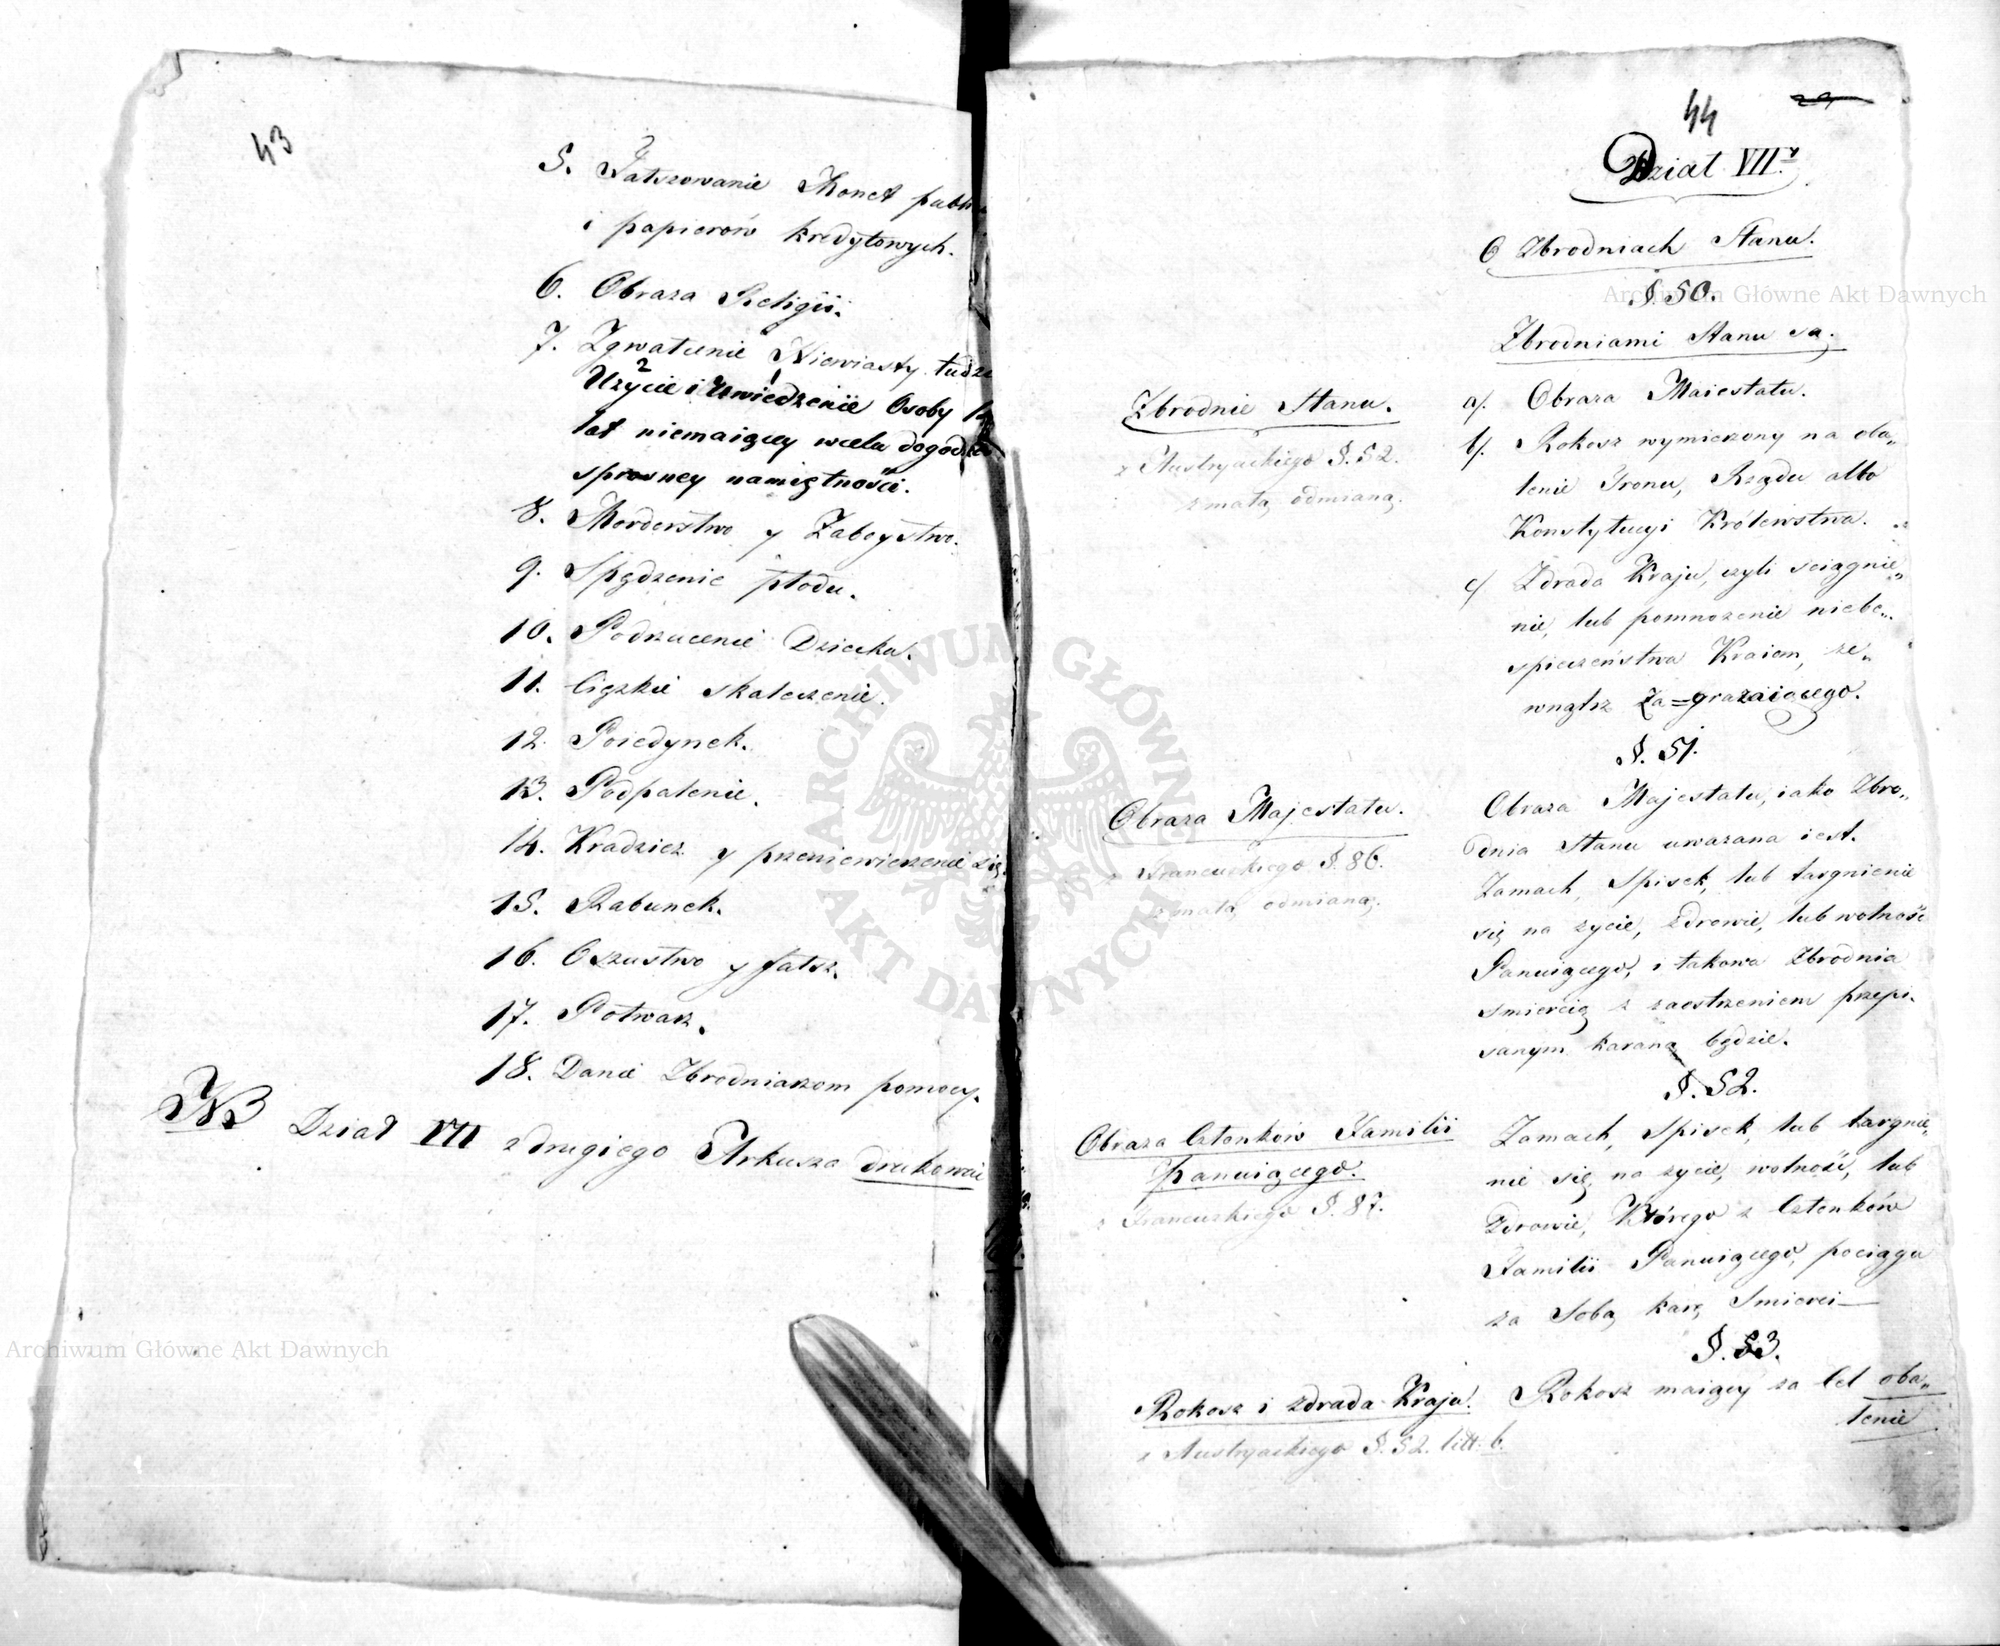 43
5. Fałszowanie Monet publi
i papierów kredytowych.
6. Obraza Religii.
7. Zgwałcenie Niewiasty tudzi
2 1
Użycie i Uwiedzenie Osoby
lat niemaiącey wcelu dogodze
sprosney namiętności.
8. Morderstwo y Zaboystwo.
9. Spędzenie płodu.
10. Podrzucenie Dziecka.
11. Ciężkie skaleczenie.
12. Poiedynek.
13. Podpalenie.
14. Kradzież y przeniewierzenie się.
15. Rabunek.
16. Oszustwo y fałsz.
17. Potwarz.
18. Danie Zbrodniarzom pomocy.
NB Dział VII z drugiego Arkusza drukować
44
Dział VII.
O Zbrodniach Stanu.
§ 50.
Zbrodniami Stanu są;
Zbrodnie Stanu.
z Austryackiego §. 52.
z małą odmianą.
a/. Obraza Maiestatu.
b/. Rokosz wymierzony na oba„
lenie Tronu, Rządu albo
Konstytucyi Królewstwa.
c/ Zdrada Kraju, czyli sciągnie„
nie, lub pomnożenie niebe„
spieczeństwa Kraiom, ze„
wnątrz Za=grażaiącego.
§. 51.
Obraza Majestatu.
z Francuskiego §. 86.
z małą odmianą.
Obraza Majestatu, iako Zbro„
dnia Stanu uważana iest.
Zamach, Spisek, lub targnienie
się na życie, zdrowie, lub wolność
Panuiącego, i takowa Zbrodnia
smiercią z zaostrzeniem przepi„
sanym karaną będzie.
§. 52.
Obraza Członków Familii
Panuiącego.
z Francuskiego §. 87.
Zamach, Spisek, lub targnie„
nie się na życie, wolność, lub
Zdrowie, Którego z Członków
Familii Panuiącego, pociąga
za Sobą karę Smierci—
§. 53.
Rokosz i zdrada Kraju.
z Austryackiego §. 52. litt: b.
Rokosz maiący za Cel oba„
lenie
Archiwum Główne Akt Dawnych
Archiwum Główne Akt Dawnych
ARCHIWUM GŁÓWNE AKT DAWNYCH